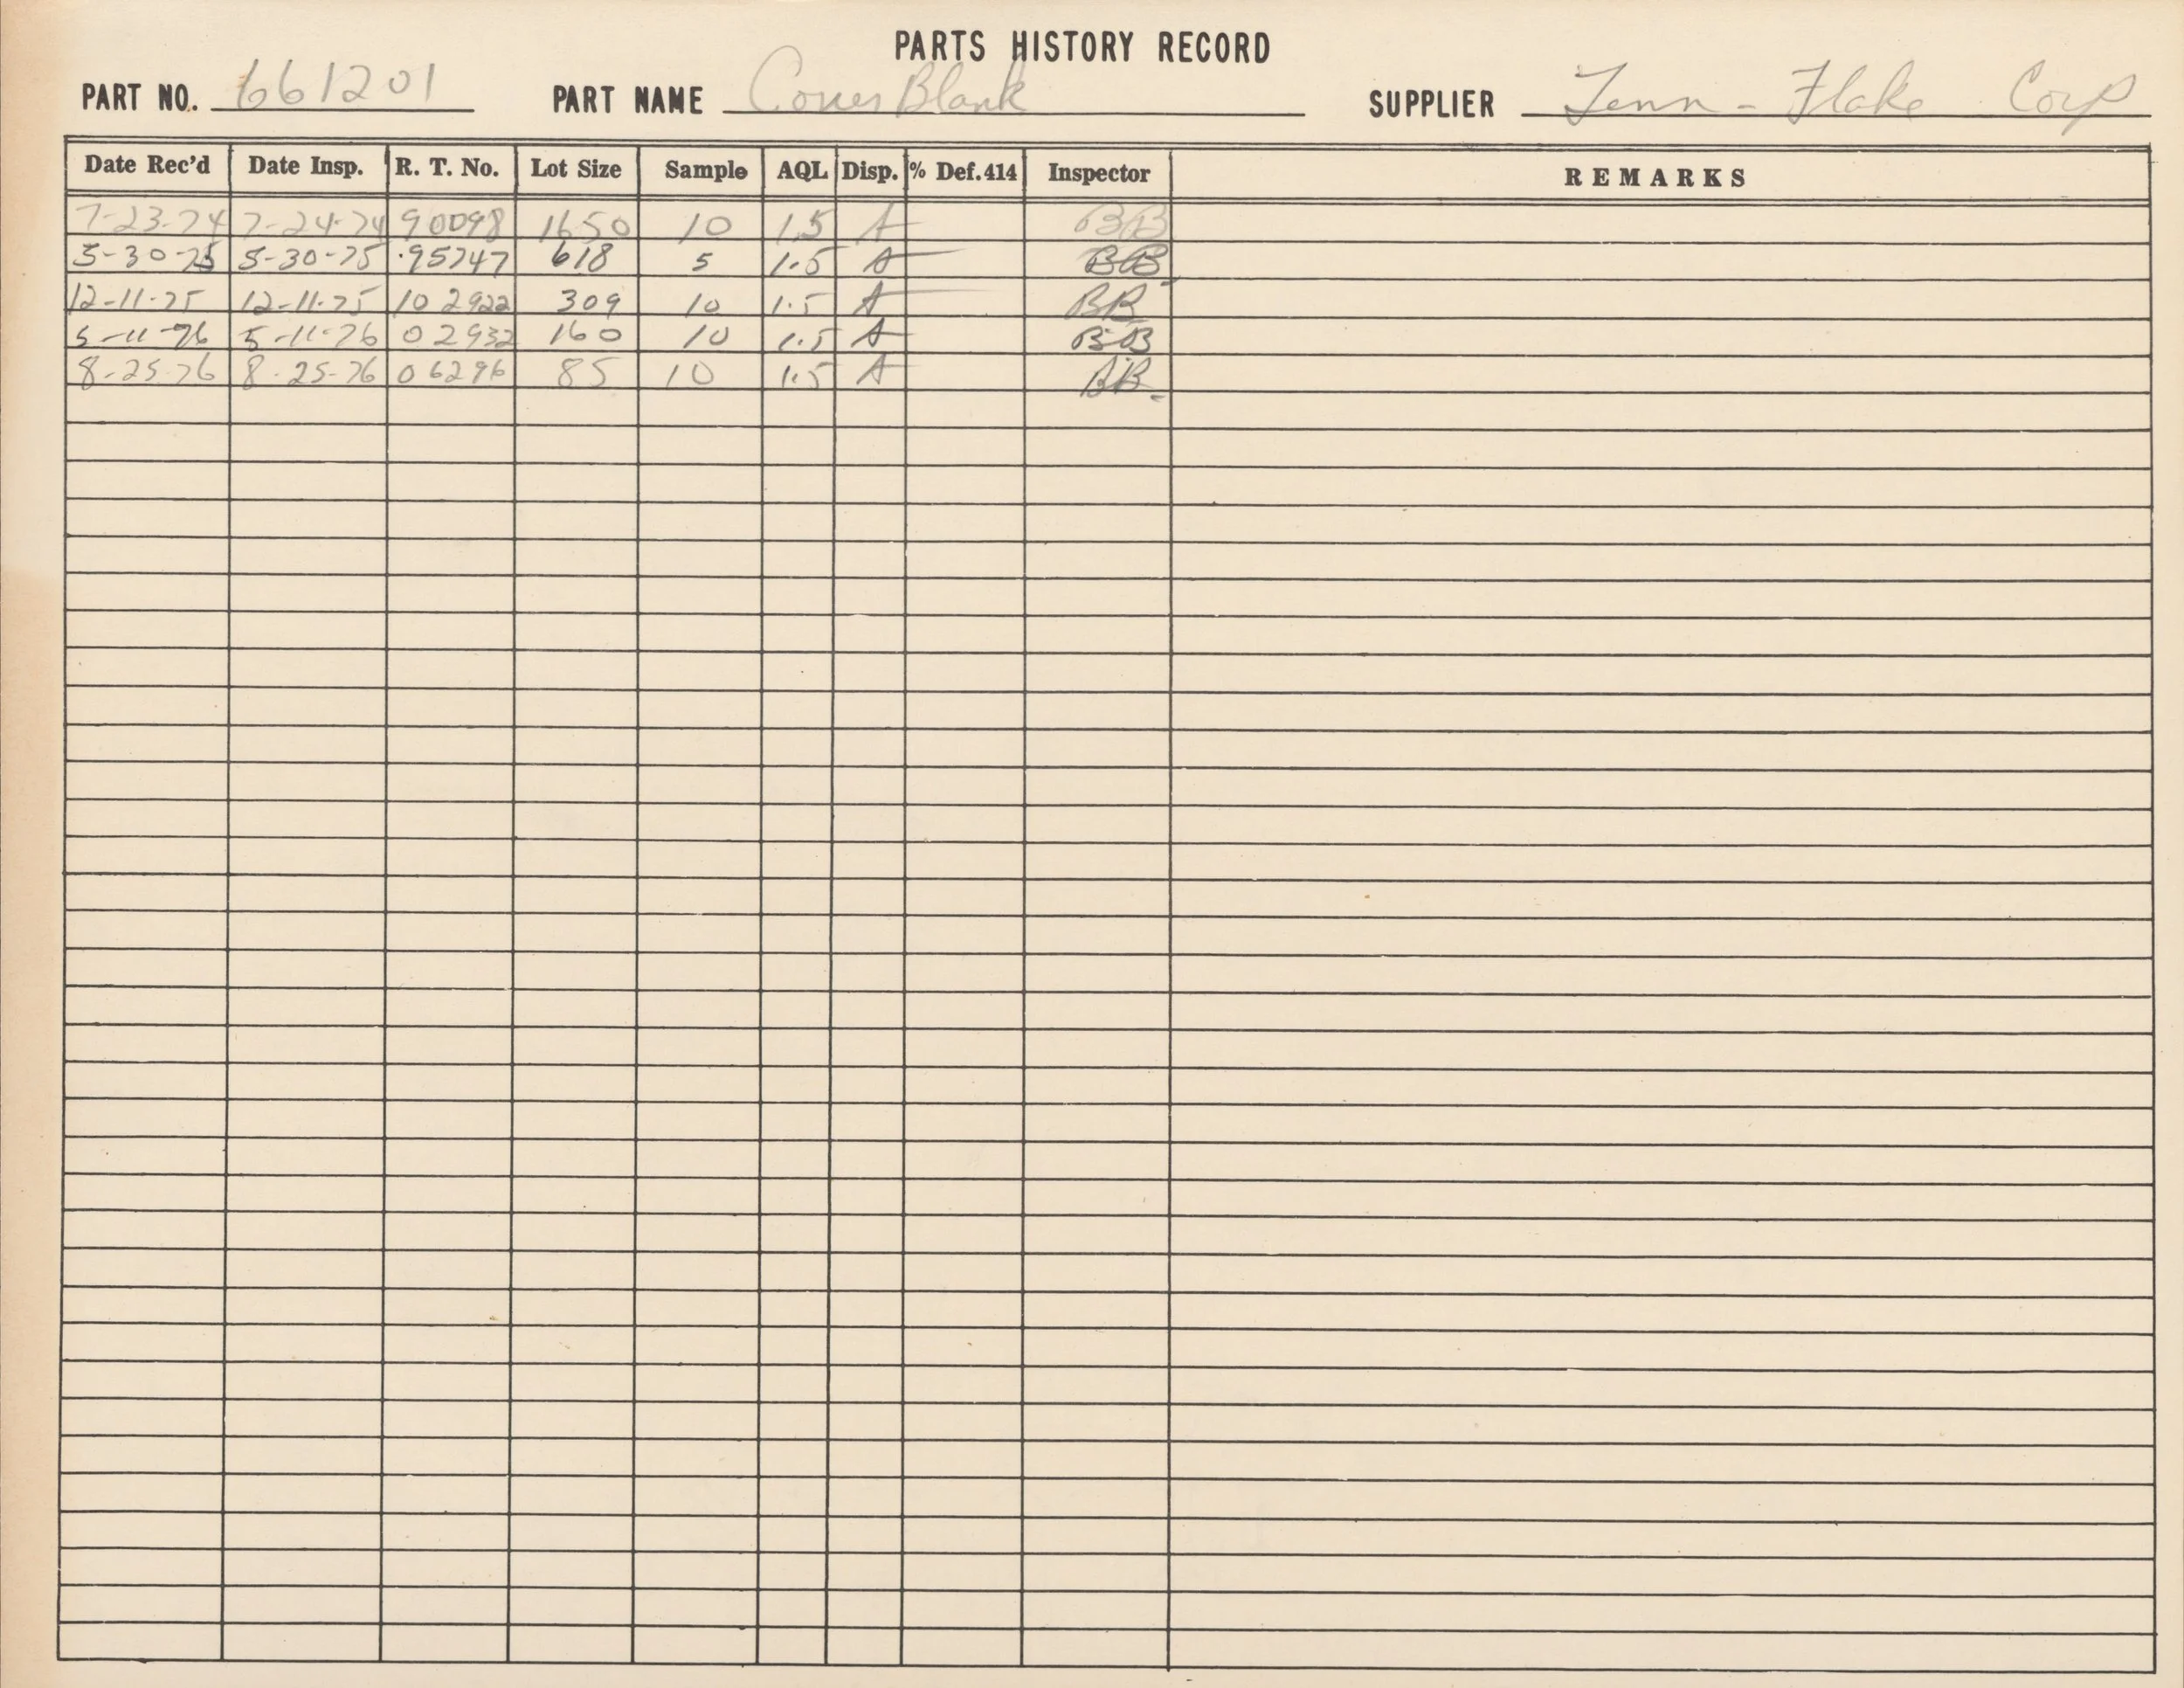 PARTS HISTORY RECORD
PART NO. 661201 PART NAME Cover Blank SUPPLIER Tenn-Flake Corp
Date Rec'd Date Insp. R. T. No. Lot Size Sample AQL Disp. % Def.414 Inspector REMARKS
7-23-74 7-24-74 90098 1650 10 1.5 A BB
5-30-75 5-30-75 95747 618 5 1.5 A BB
12-11-75 12-11-75 102922 309 10 1.5 A BB
5-11-76 5-11-76 02932 160 10 1.5 A BB
8-25-76 8-25-76 06296 85 10 1.5 A BB